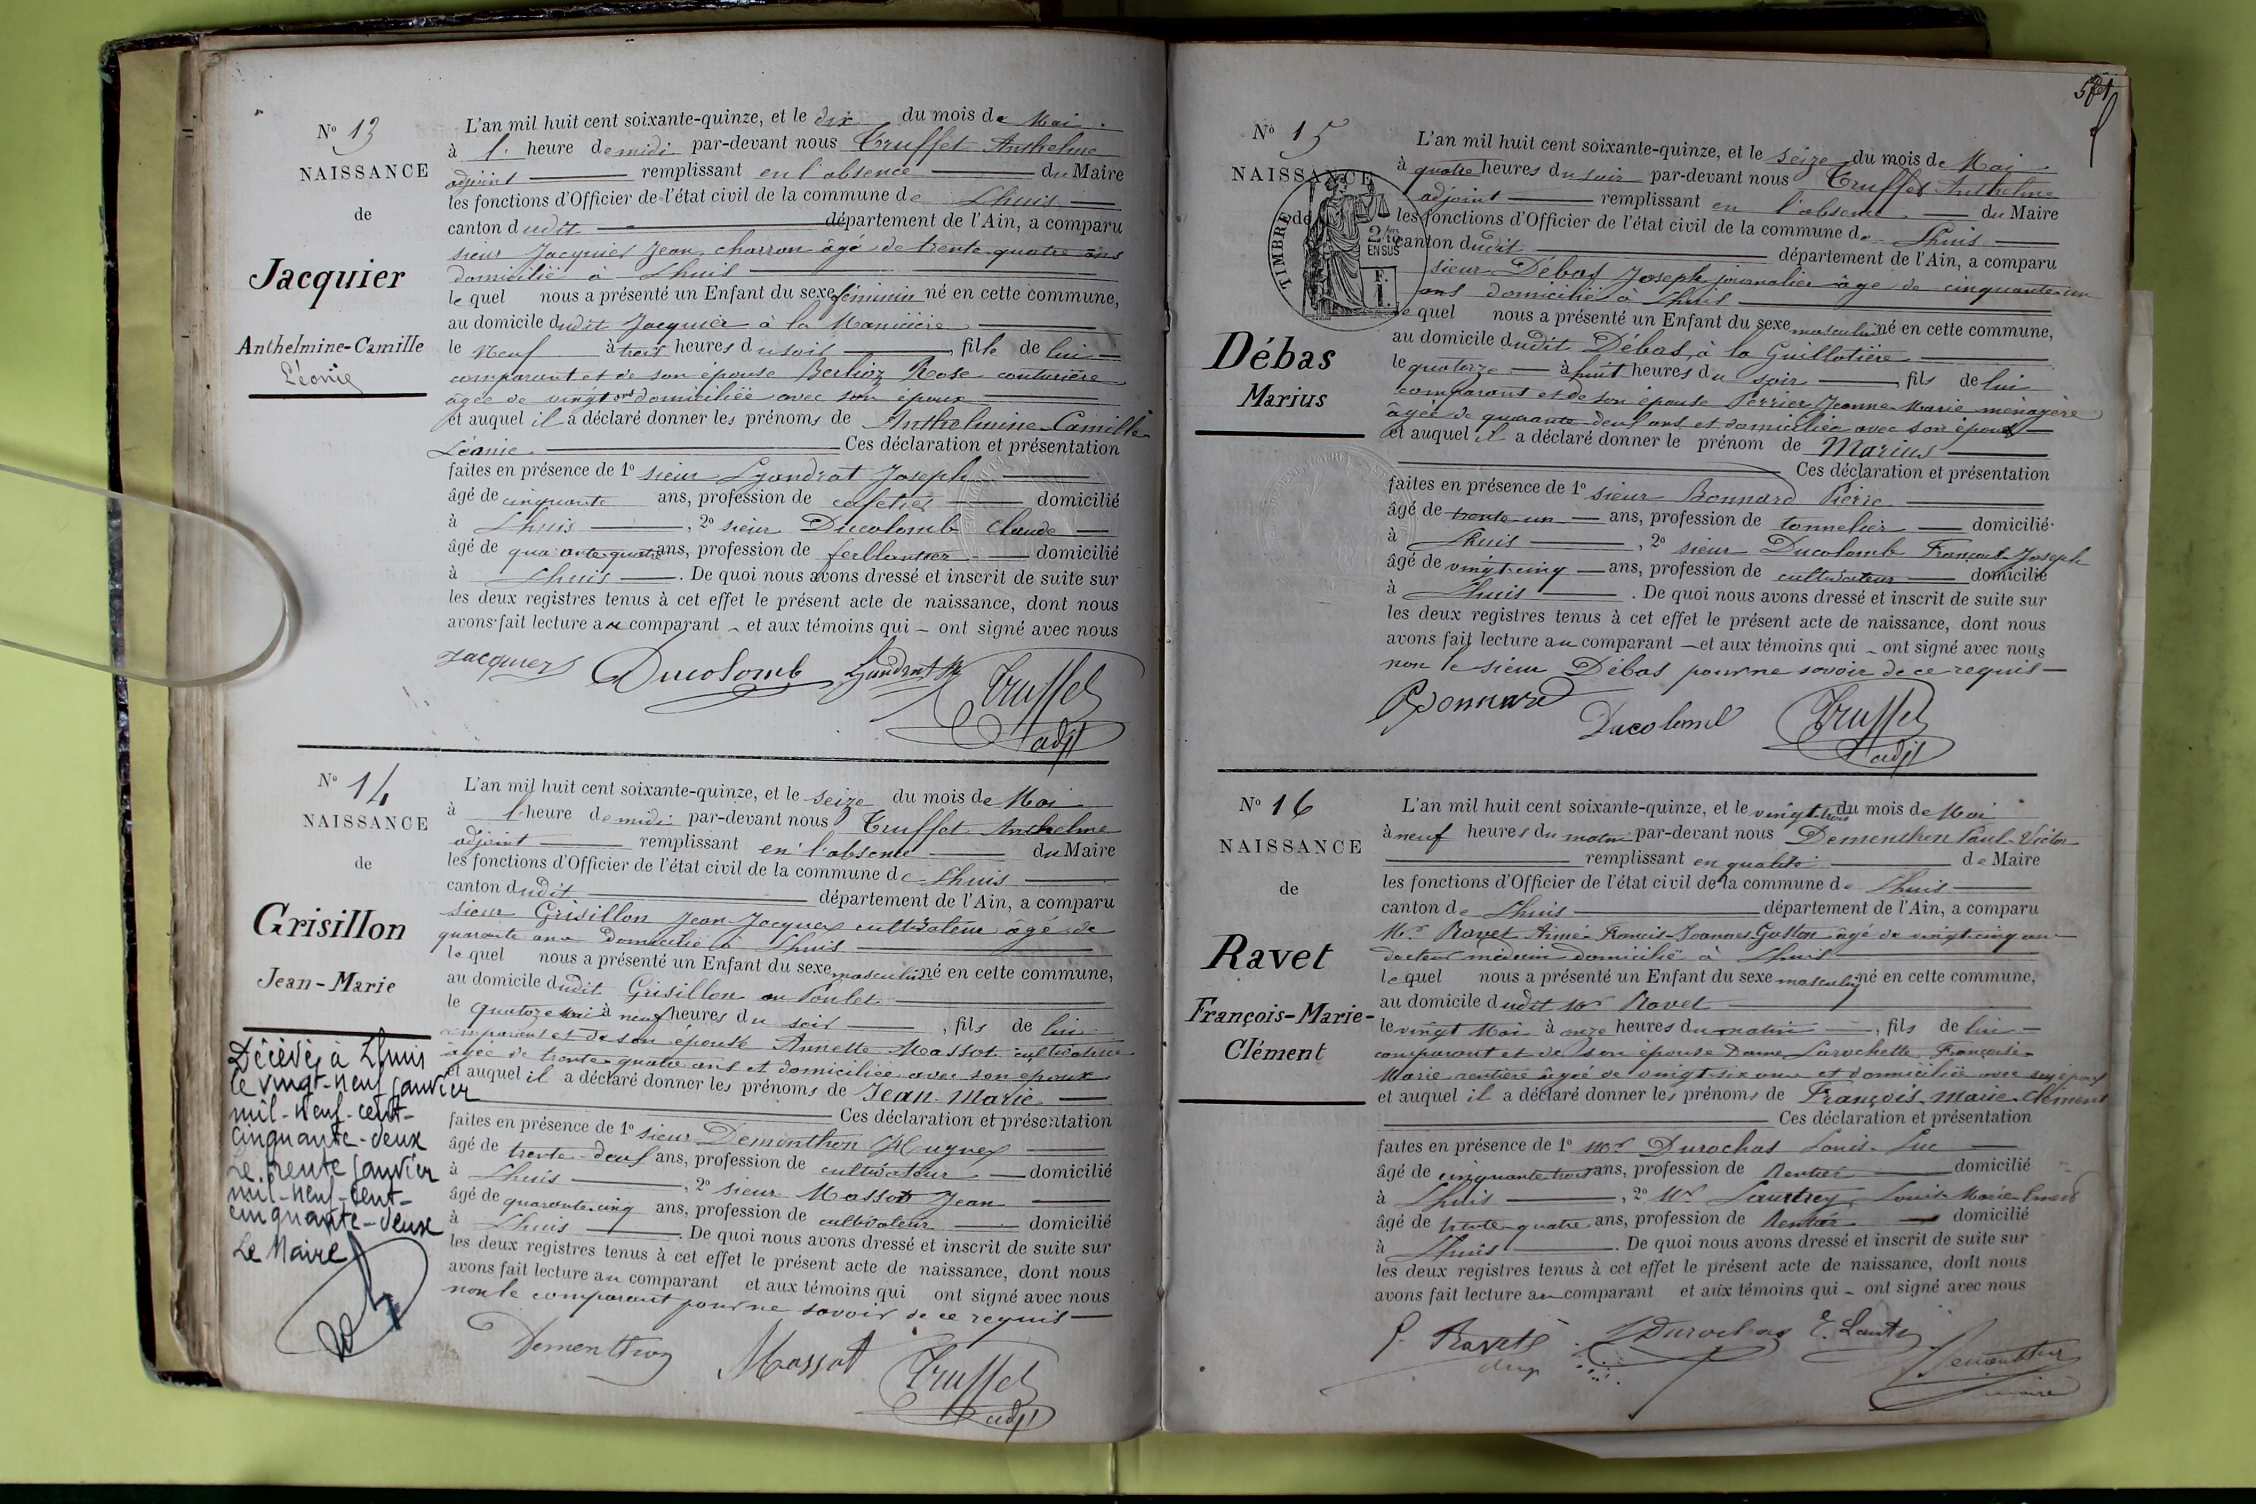 N° 13
NAISSANCE
de
Jacquier
Anthelmine-Camille
Léonie
L'an mil huit cent soixante-quinze, et le dix du mois de Mai
à 1 heure de midi par-devant nous Truffet Anthelme
adjoint remplissant en l'absence du Maire
les fonctions d'Officier de l'état civil de la commune de Lhuis
canton dudit département de l'Ain, a comparu
sieur Jacquier Jean, charron âgé de trente quatre ans
domicilié à Lhuis
lequel nous a présenté un Enfant du sexe féminin né en cette commune,
au domicile dudit Jacquier à la
le Neuf à trois heures du soir, fille de lui
comparant et de son épouse Berlioz Rose couturière
âgée de vingt ans domiciliée avec son époux
et auquel il a déclaré donner les prénoms de Anthelmine Camille
Léonie Ces déclaration et présentation
faites en présence de 1° sieur Lyandrat Joseph
âgé de cinquante ans, profession de cafetier domicilié
à Lhuis, 2° sieur Ducolomb Claude
âgé de quarante quatre ans, profession de ferblantier domicilié
à Lhuis. De quoi nous avons dressé et inscrit de suite sur
les deux registres tenus à cet effet le présent acte de naissance, dont nous
avons fait lecture au comparant et aux témoins qui ont signé avec nous
Jacquier Ducolomb Lyandrat Truffet
adjt
N° 14
NAISSANCE
de
Grisillon
Jean-Marie
Décédé à Lhuis
le vingt-neuf janvier
mil-neuf-cent-
cinquante-deux
Le trente janvier
mil-neuf-cent-
cinquante-deux
Le Maire
L'an mil huit cent soixante-quinze, et le seize du mois de Mai
à 1 heure de midi par-devant nous Truffet Anthelme
adjoint remplissant en l'absence du Maire
les fonctions d'Officier de l'état civil de la commune de Lhuis
canton dudit département de l'Ain, a comparu
sieur Grisillon Jean Jacques cultivateur âgé de
quarante ans domicilié à Lhuis
lequel nous a présenté un Enfant du sexe masculin né en cette commune,
au domicile dudit Grisillon au Poulet
le quatorze Mai à neuf heures du soir, fils de lui
comparant et de son épouse Annette Massot cultivatrice
âgée de trente quatre ans et domiciliée avec son époux
et auquel il a déclaré donner les prénoms de Jean Marie
Ces déclaration et présentation
faites en présence de 1° sieur Dementhon Hugues
âgé de trente-deux ans, profession de cultivateur domicilié
à Lhuis, 2° sieur Massot Jean
âgé de quarante cinq ans, profession de cultivateur domicilié
à Lhuis. De quoi nous avons dressé et inscrit de suite sur
les deux registres tenus à cet effet le présent acte de naissance, dont nous
avons fait lecture au comparant et aux témoins qui ont signé avec nous
non le comparant pour ne savoir de ce requis
Dementhon Massot Truffet
adjt
N° 15
NAISSANCE
de
TIMBRE
2/10
EN SUS
Débas
Marius
L'an mil huit cent soixante-quinze, et le seize du mois de Mai
à quatre heures du soir par-devant nous Truffet Anthelme
adjoint remplissant en l'absence du Maire
les fonctions d'Officier de l'état civil de la commune de Lhuis
canton dudit département de l'Ain, a comparu
sieur Débas Joseph journalier âgé de cinquante un
ans domicilié à Lhuis
lequel nous a présenté un Enfant du sexe masculin né en cette commune,
au domicile dudit Débas, à la Guillotière
le quatorze à huit heures du soir, fils de lui
comparant et de son épouse Perrier Jeanne Marie ménagère
âgée de quarante deux ans et domiciliée avec son époux
et auquel il a déclaré donner le prénom de Marius
Ces déclaration et présentation
faites en présence de 1° sieur Bonnard Pierre
âgé de trente un ans, profession de tonnelier domicilié
à Lhuis, 2° sieur Ducolomb François Joseph
âgé de vingt-cinq ans, profession de cultivateur domicilié
à Lhuis. De quoi nous avons dressé et inscrit de suite sur
les deux registres tenus à cet effet le présent acte de naissance, dont nous
avons fait lecture au comparant et aux témoins qui ont signé avec nous
non le sieur Débas pour ne savoir de ce requis
Bonnard Ducolomb Truffet
adjt
N° 16
NAISSANCE
de
Ravet
François-Marie-
Clément
L'an mil huit cent soixante-quinze, et le vingt-trois du mois de Mai
à neuf heures du matin par-devant nous Dementhon Paul-Victor
remplissant en qualité de Maire
les fonctions d'Officier de l'état civil de la commune de Lhuis
canton de Lhuis département de l'Ain, a comparu
Mr Ravet Aimé-Francis-Joannes Gaston âgé de vingt-cinq ans
docteur médecin domicilié à Lhuis
lequel nous a présenté un Enfant du sexe masculin né en cette commune,
au domicile dudit Mr Ravet
le vingt Mai à onze heures du matin, fils de lui
comparant et de son épouse Dame Larochette Françoise
Marie rentière âgée de vingt-six ans et domiciliée avec son époux
et auquel il a déclaré donner les prénoms de François Marie Clément
Ces déclaration et présentation
faites en présence de 1° Mr Durochat Louis-Luc
âgé de cinquante trois ans, profession de Rentier domicilié
à Lhuis, 2° Mr Louis Marie
âgé de trente-quatre ans, profession de Rentier domicilié
à Lhuis. De quoi nous avons dressé et inscrit de suite sur
les deux registres tenus à cet effet le présent acte de naissance, dont nous
avons fait lecture au comparant et aux témoins qui ont signé avec nous
Ravet Durochat
maire